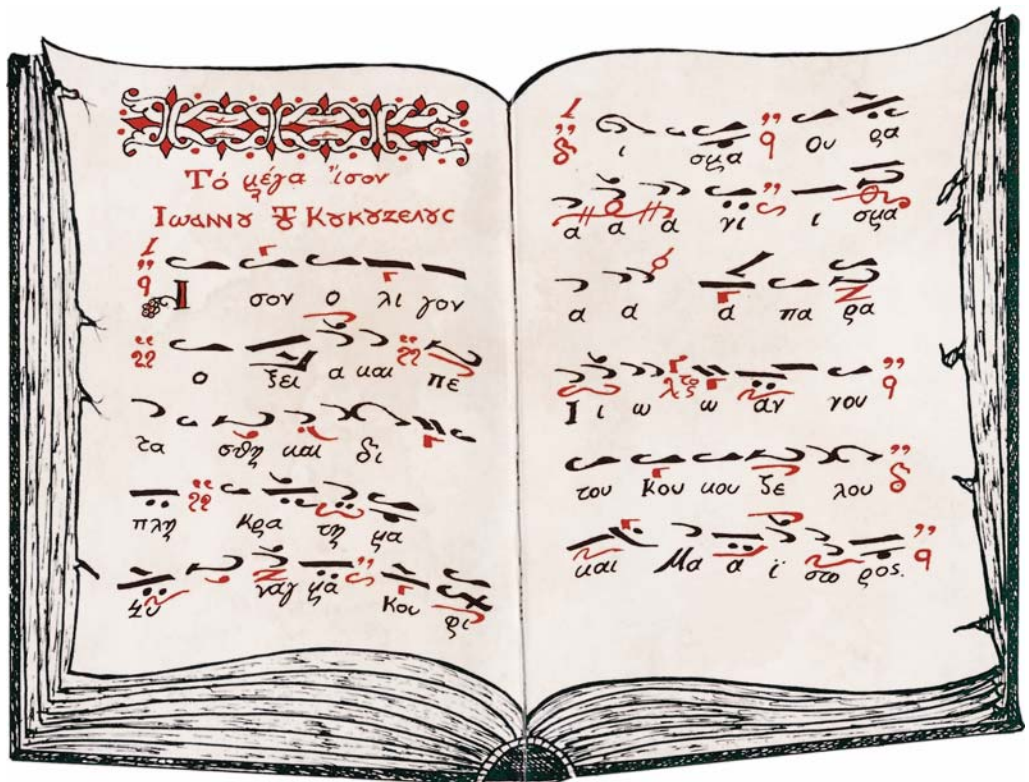 Τό μέγα ἴσον
Ιωαννȣ τȣ͂ Κȣκȣζελȣς
Ι σον ο λι γον
ο ξει α και πε
τα σθη και δι
πλη κρα τη μα
ξυ ναγ μα Κου φι
ι σμα Ου ρα
α α α γι ι σμα
α α α πα ρα
Ι ι ω ω αν νου
του Κου κου ζε λου
και Μα α ϊ στο ρος.